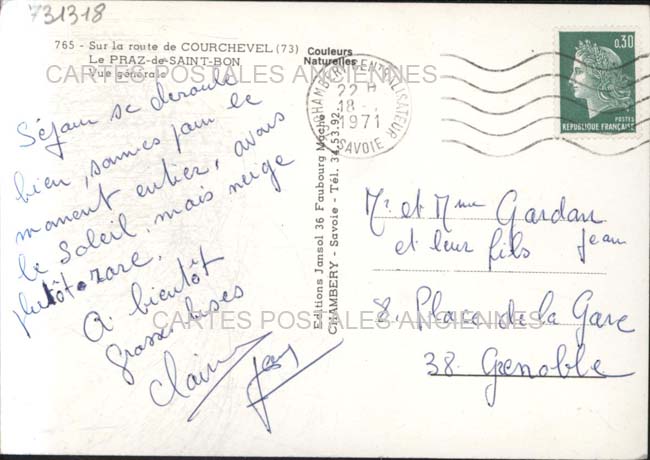 731318
765 - Sur la route de COURCHEVEL (73)
Le PRAZ-de-SAINT-BON
Vue générale
Couleurs
Naturelles
CARTES POSTALES ANCIENNES
CHAMBERY CENTRALISATEUR
22 H
18 -
1971
SAVOIE
0,30
POSTES
REPUBLIQUE FRANÇAISE
Séjour se déroule
bien, sommes pour le
moment entier, avons
le Soleil, mais neige
plutôt rare.
A bientôt
Grosses bises
Claire
Editions Jansol 36 Faubourg Maché
CHAMBERY - Savoie - Tél. 34.53.92
Mr et Mme Gardan
et leur fils Jean
8, Place de la Gare
38. Grenoble
CARTES POSTALES ANCIENNES